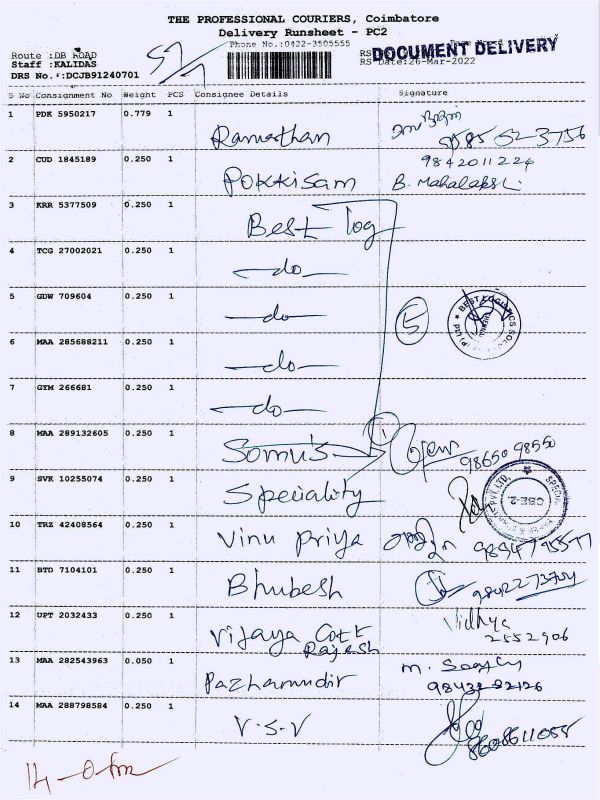 THE PROFESSIONAL COURIERS, Coimbatore
Delivery Runsheet - PC2
Phone No.:0422-3505555
DOCUMENT DELIVERY
Route :DB ROAD
Staff :KALIDAS
RS Date:26-Mar-2022
DRS No.:DCJB91240701
S No Consignment No Weight PCS Consignee Details Signature
1 PDK 5950217 0.779 1 Ramnathan
2 CUD 1845189 0.250 1 Pokkisam 9842011224
B. Mahalakshi
3 KRR 5377509 0.250 1 Best log
4 TCG 27002021 0.250 1 -do-
5 GDW 709604 0.250 1 -do- 5
6 MAA 285688211 0.250 1 -do-
7 GYM 266681 0.250 1 -do-
8 MAA 289132605 0.250 1 Somu's 98650 98550
9 SVK 10255074 0.250 1 Speciality
CBE-2
10 TRZ 42408564 0.250 1 Vinu Priya
11 BTD 7104101 0.250 1 Bhubesh
12 UPT 2032433 0.250 1 Vijaya Cott Vidhya
Rajesh 2552906
13 MAA 282543963 0.050 1 Pazhamudir
14 MAA 288798584 0.250 1 V.S.V
8608611055